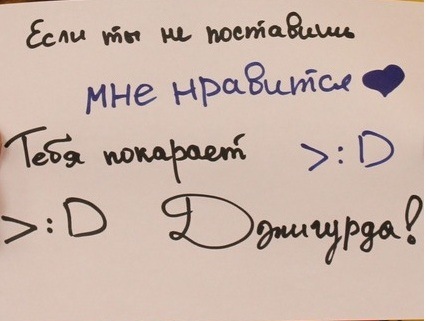 Если ты не поставишь
мне нравится ♥
Тебя покарает >:D
>:D Джигурда!